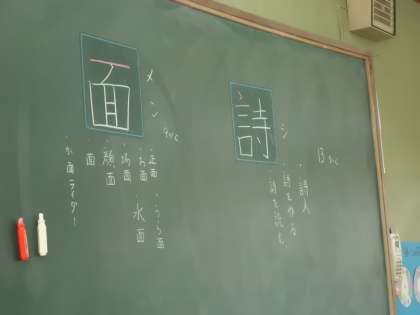 詩
シ
13かく
・詩人
・詩を作る
・詩を読む
面
メン
9かく
・正面 ・うら面
・お面 水面
・場面
・顔面
・面
・か面ライダー